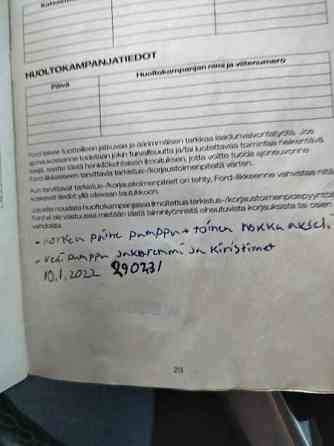 HUOLTOKAMPANJATIEDOT
Päivä
Huoltokampanjan nimi ja viitenumero
Ford tekee tuotteilleen jatkuvaa ja äärimmäisen tarkkaa laadunvalvontatyötä. Jos
ajoneuvossanne todetaan jokin turvallisuutta ja/tai luotettavaa toimintaa heikentävä
saatte siitä henkilökohtaisen ilmoituksen, jotta voitte tuoda ajoneuvonne
Ford-liikkeeseen tarvittavia tarkastus-/korjaustoimenpiteitä varten.
Kun tarvittavat tarkastus-/korjaustoimenpiteet on tehty, Ford-liikkeenne vahvistaa
tiedot yllä olevaan taulukkoon.
noudata huoltokampanjassa ilmoitettua tarkastus-/korjaustoimenpidepyyntöä
Ford ei ole vastuussa mistään tästä laiminlyönnistä aiheutuvista korjauksista tai osien
vaihdosta.
- korkea paine pumppu + toinen nokka aksel.
- vesi pumppu jakoremmi ja kiristimet
10.1.2022 290231
29